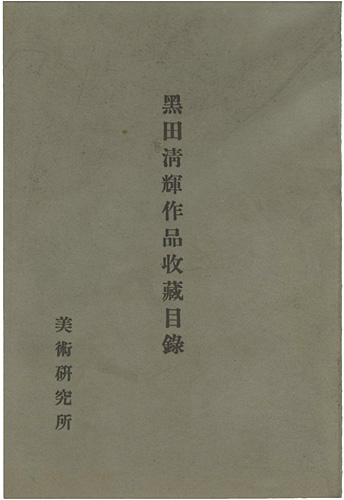 黑田淸輝作品收藏目錄
美術硏究所